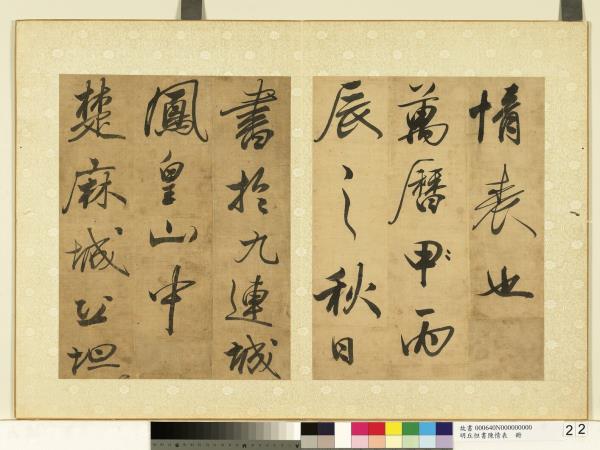 情表也
萬曆甲丙
辰之秋日
書於九連城
鳳皇山中
楚麻城丘坦
故書 000640N000000000
明丘坦書陳情表 冊
22